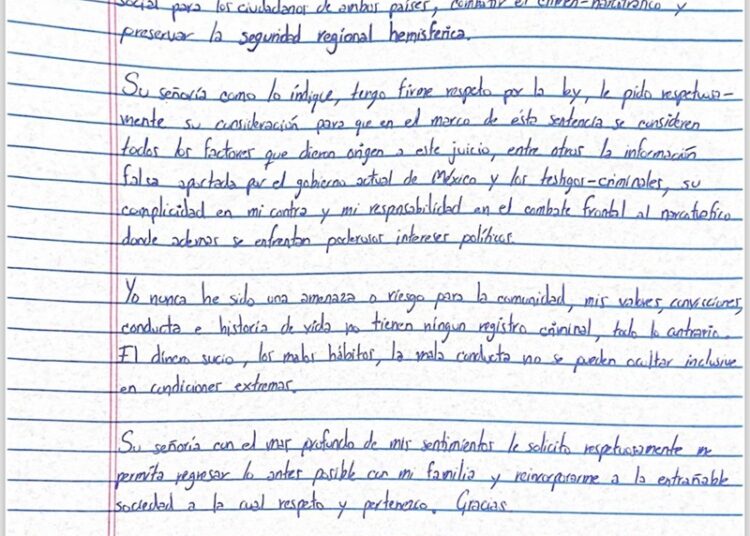 social para los ciudadanos de ambos países, combatir el crimen-narcotráfico y
preservar la seguridad regional hemisferica.
Su señoría como lo indique, tengo firme respeto por la ley, le pido respetuosa-
mente su consideración para que en el marco de ésta sentencia se consideren
todos los factores que dieron origen a este juicio, entre otros la información
falsa aportada por el gobierno actual de México y los testigos-criminales, su
complicidad en mi contra y mi responsabilidad en el combate frontal al narcotrafico
donde ademas se enfrentan poderosos intereses políticos.
Yo nunca he sido una amenaza o riesgo para la comunidad, mis valores, convicciones,
conducta e historia de vida no tienen ningun registro criminal, todo lo contrario.
El dinero sucio, los malos hábitos, la mala conducta no se pueden ocultar inclusive
en condiciones extremas.
Su señoría con el mas profundo de mis sentimientos le solicito respetuosamente me
permita regresar lo antes posible con mi familia y reincorporarme a la entrañable
sociedad a la cual respeto y pertenezco. Gracias